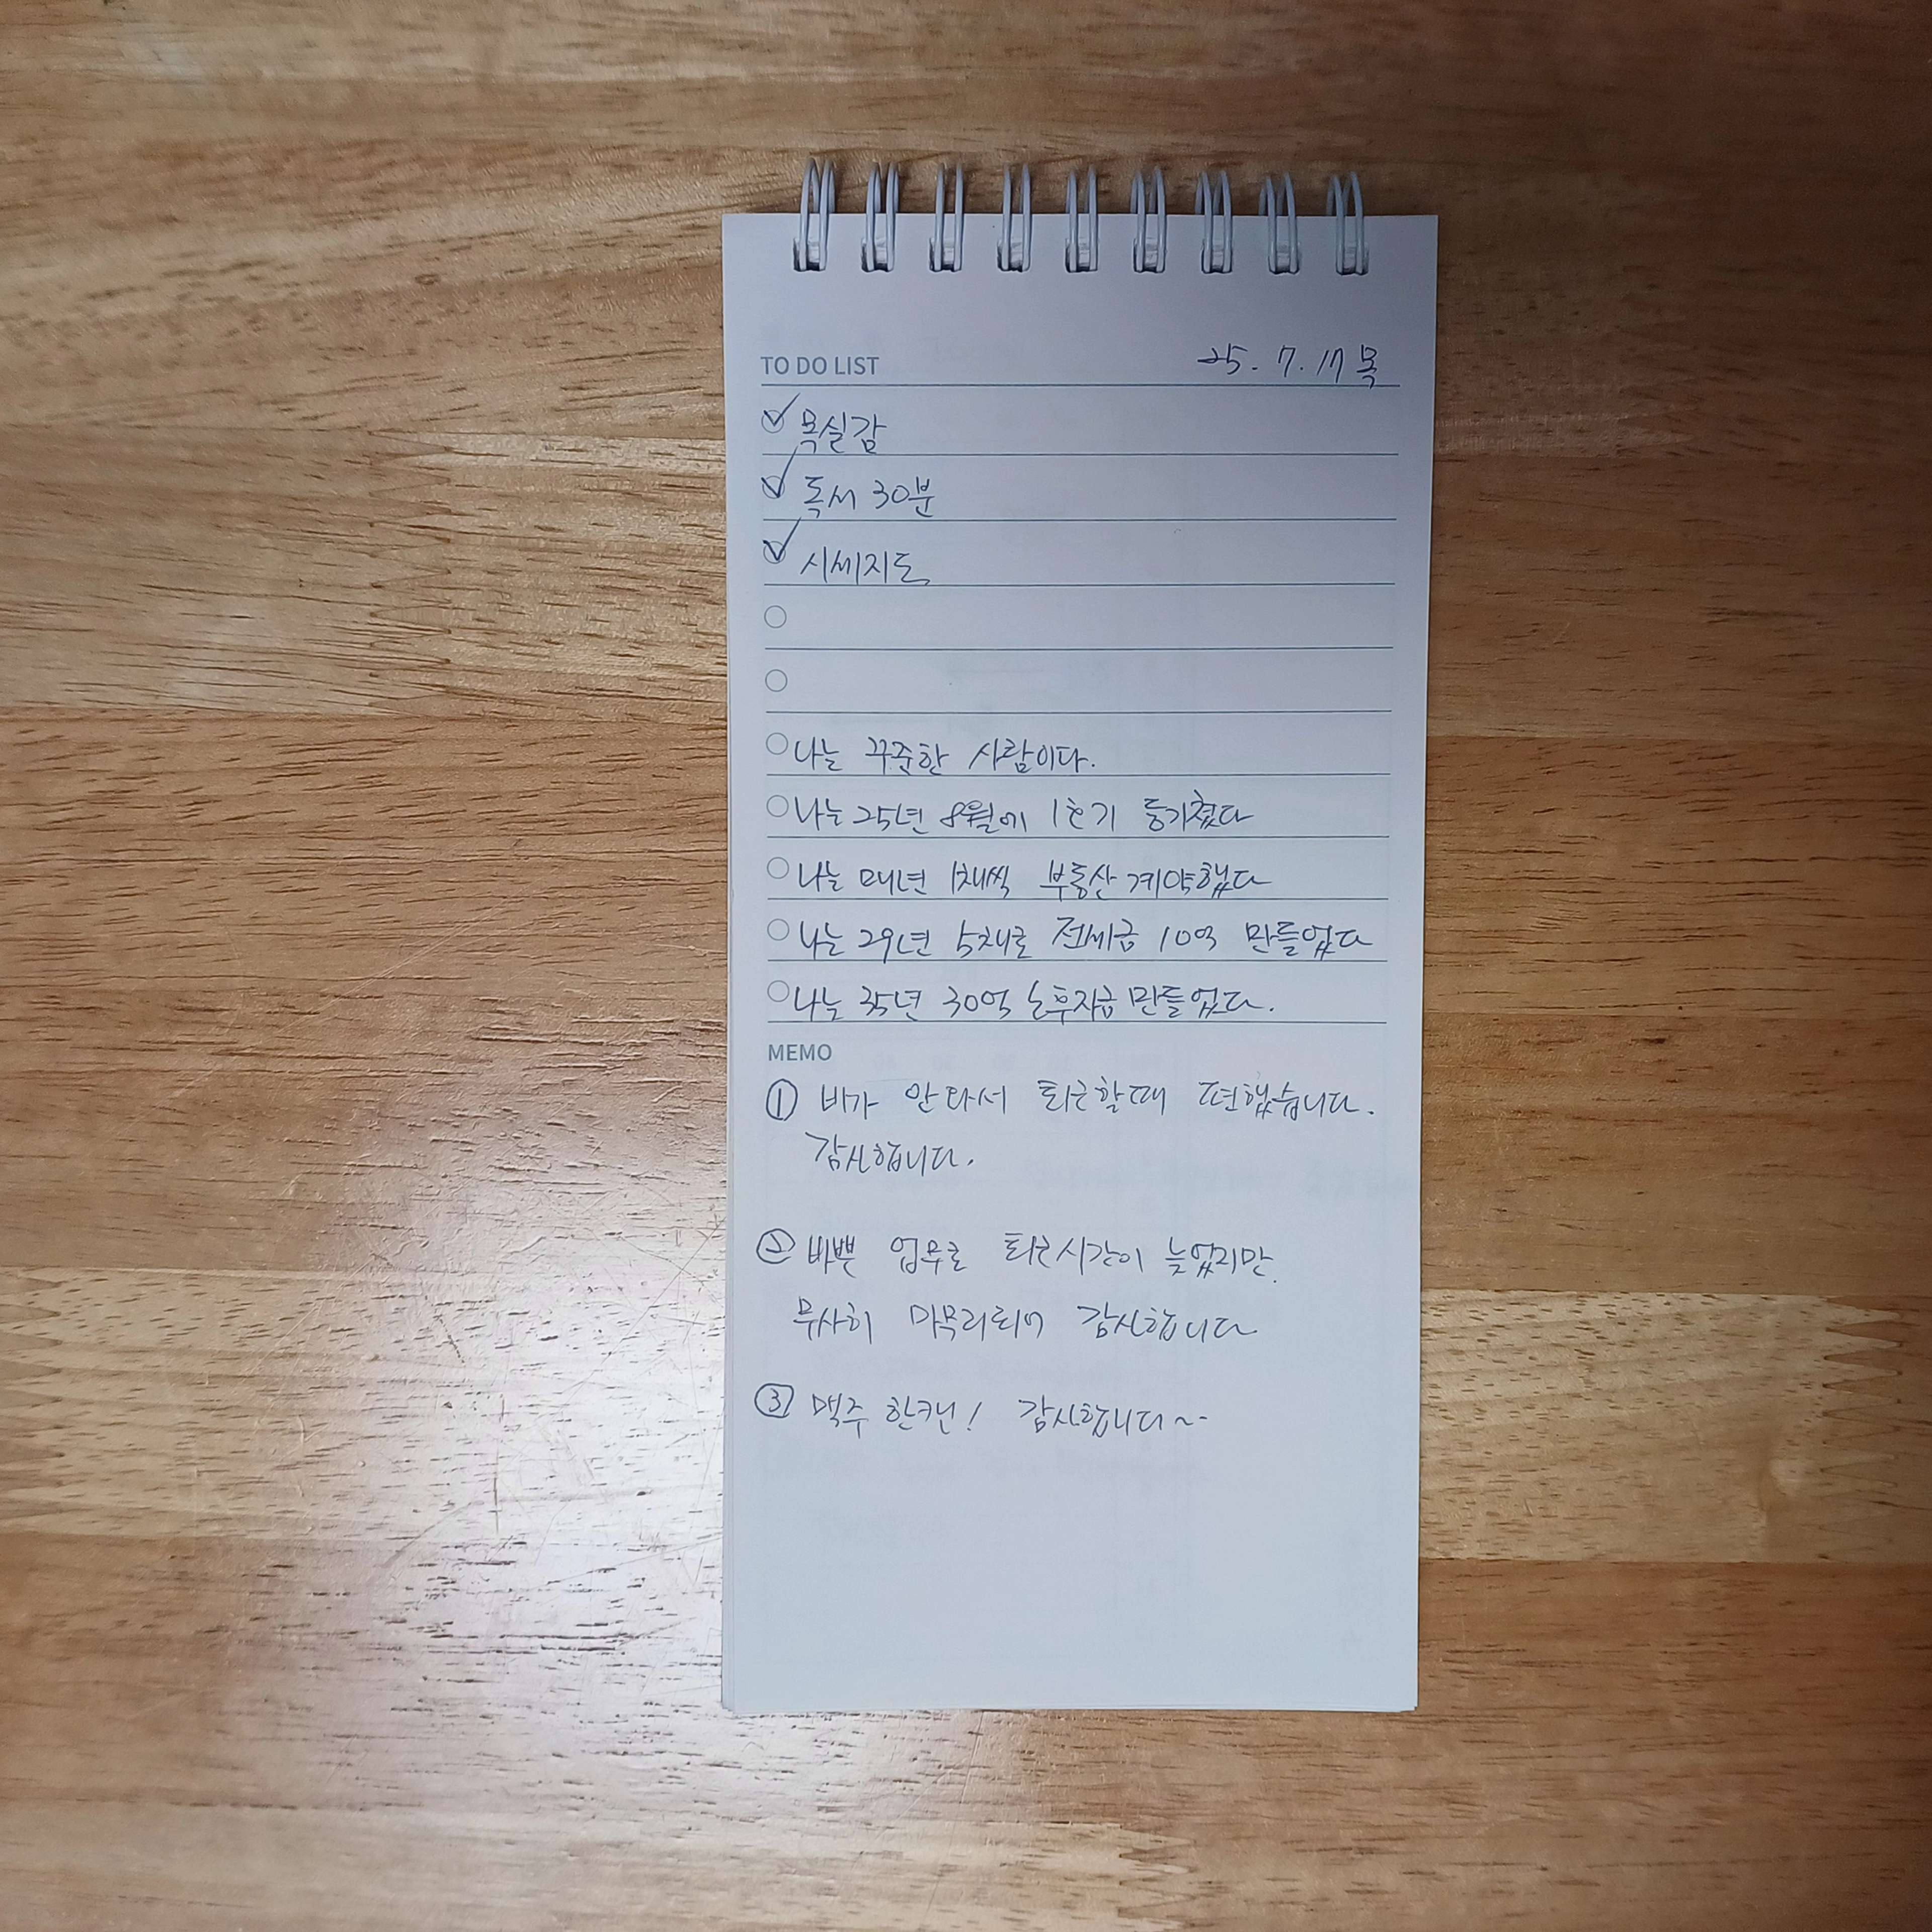 TO DO LIST 25. 7. 17 목
목실감
독서 30분
시세지도
나는 꾸준한 사람이다.
나는 25년 8월에 1호기 등기쳤다
나는 매년 1채씩 부동산 계약했다
나는 29년 5채로 전세금 10억 만들었다
나는 35년 30억 노후자금 만들었다.
MEMO
① 비가 안와서 퇴근할때 편했습니다.
감사합니다.
② 바쁜 업무로 퇴근시간이 늦었지만
무사히 마무리되어 감사합니다
③ 맥주 한캔! 감사합니다~